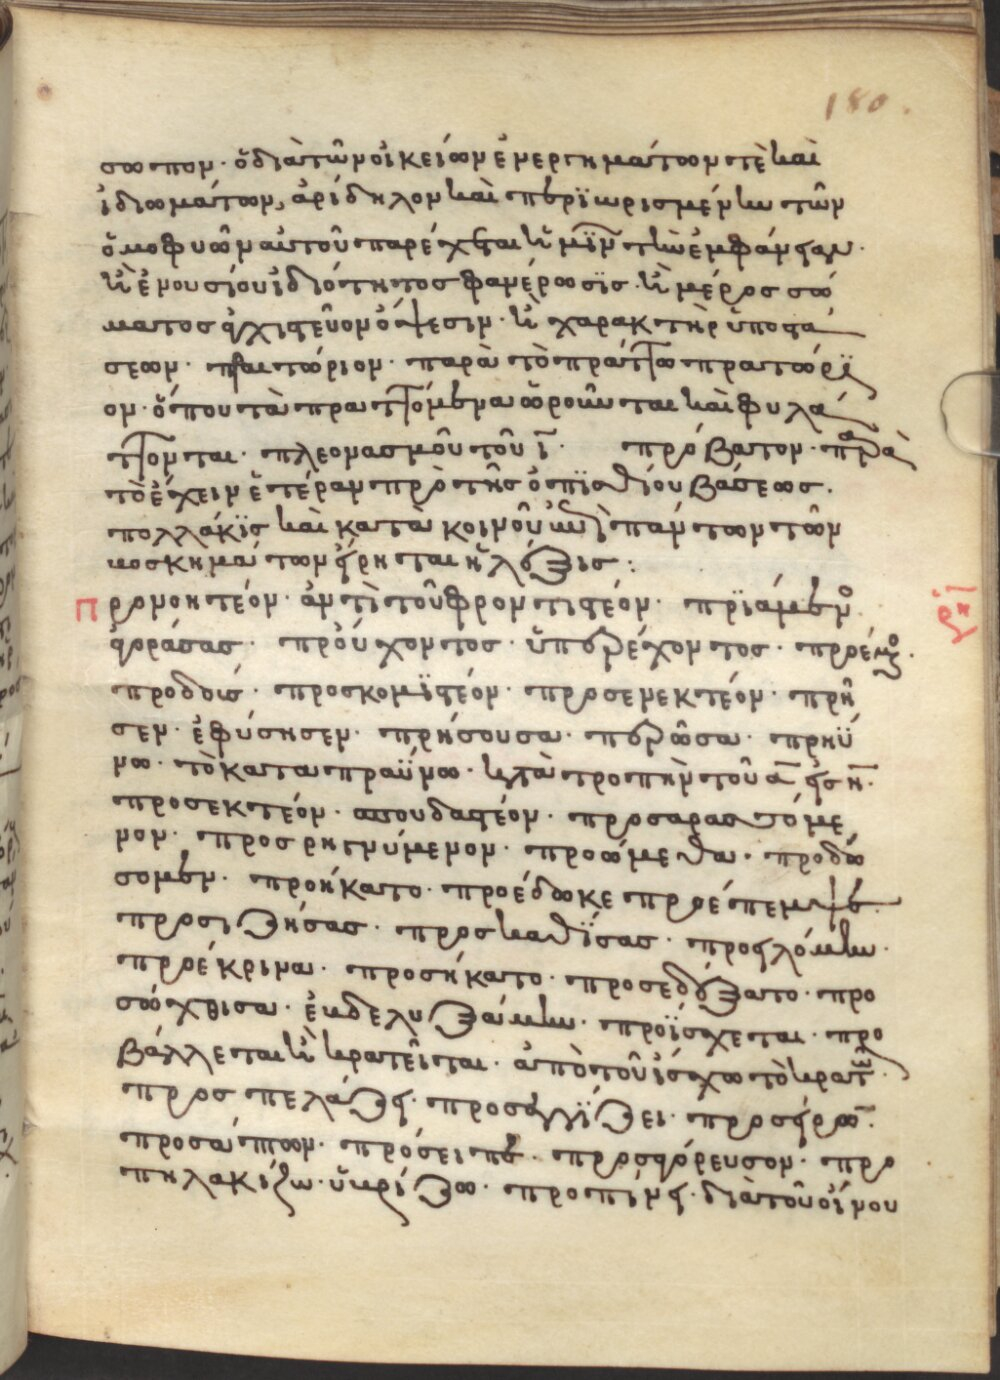 180.
σωπον· ὃ διὰ τῶν οἰκείων ἐνεργημάτων τὲ καὶ
ἰδιωμάτων, ἀρίδηλον καὶ περιωρισμένην τῶν
ὁμοφυῶν αὐτοῦ παρέχεται ἡμῖν τὴν ἐμφάνειαν·
ἢ ἐνουσίου ἰδιότητος φανέρωσϊς· ἢ μέρος σώ
ματος ὄψεσιν· ἢ χαρακτὴρ ὑποστά
σεων· πραιτώριον· παρὰ τὸ πράττω πρατώρϊ
ον· ὅπου τὰ πραττόμενα θεωροῦνται καὶ φυλά
ττονται· πλεονασμοῦ τοῦ ι· πρόβατον· παρὰ
τὸ ἔχειν ἑτέραν πρὸ τῆς ὀπισθίου βάσεως·
πολλάκϊς καὶ κατὰ κοινοῦ ἐπὶ πάντων τῶν
βοσκημάτων εἴρηται ἡ λέξις:
Προνοητέον· ἀντὶ τοῦ φροντιστέον· πρϊάμενος
ἀγοράσας· προὔχοντος· ὑπερέχοντος· προέμενος·
προδούς· προσκομϊστέον· προσενεκτέον· πρῆ
σεν· ἐφύσησεν· πρήσουσα· περῶσα· πρηΰ
νω· τὸ καταπραΰνω· κατὰ τροπὴν τοῦ α εἰς η·
προσεκτέον· σπουδαστέον· προσαρασσόμε
νον· προσρηγνύμενον· προώμεθα· προδώ
σομεν· προήκατο· προέδωκε προέπεμψε·
προσιζήσας· προσκαθΐσας· προειλόμην·
προέκρινα· προσήκατο· προσεδέξατο· προ
σώχθισα· ἐβδελυξάμην· προΐσχεται· προ
βάλλεται ἢ κρατεῖται· ἀπὸ τοῦ ἰσχω τὸ κρατῶ·
προσπελάζει· προσεγγΐζει·
προσάπτων· πρόσειπε· προσαγόρευσον· προ
πηλακίζω· ὑβρίζω· προπίνει· διὰ τοῦ οἴνου
ρκ